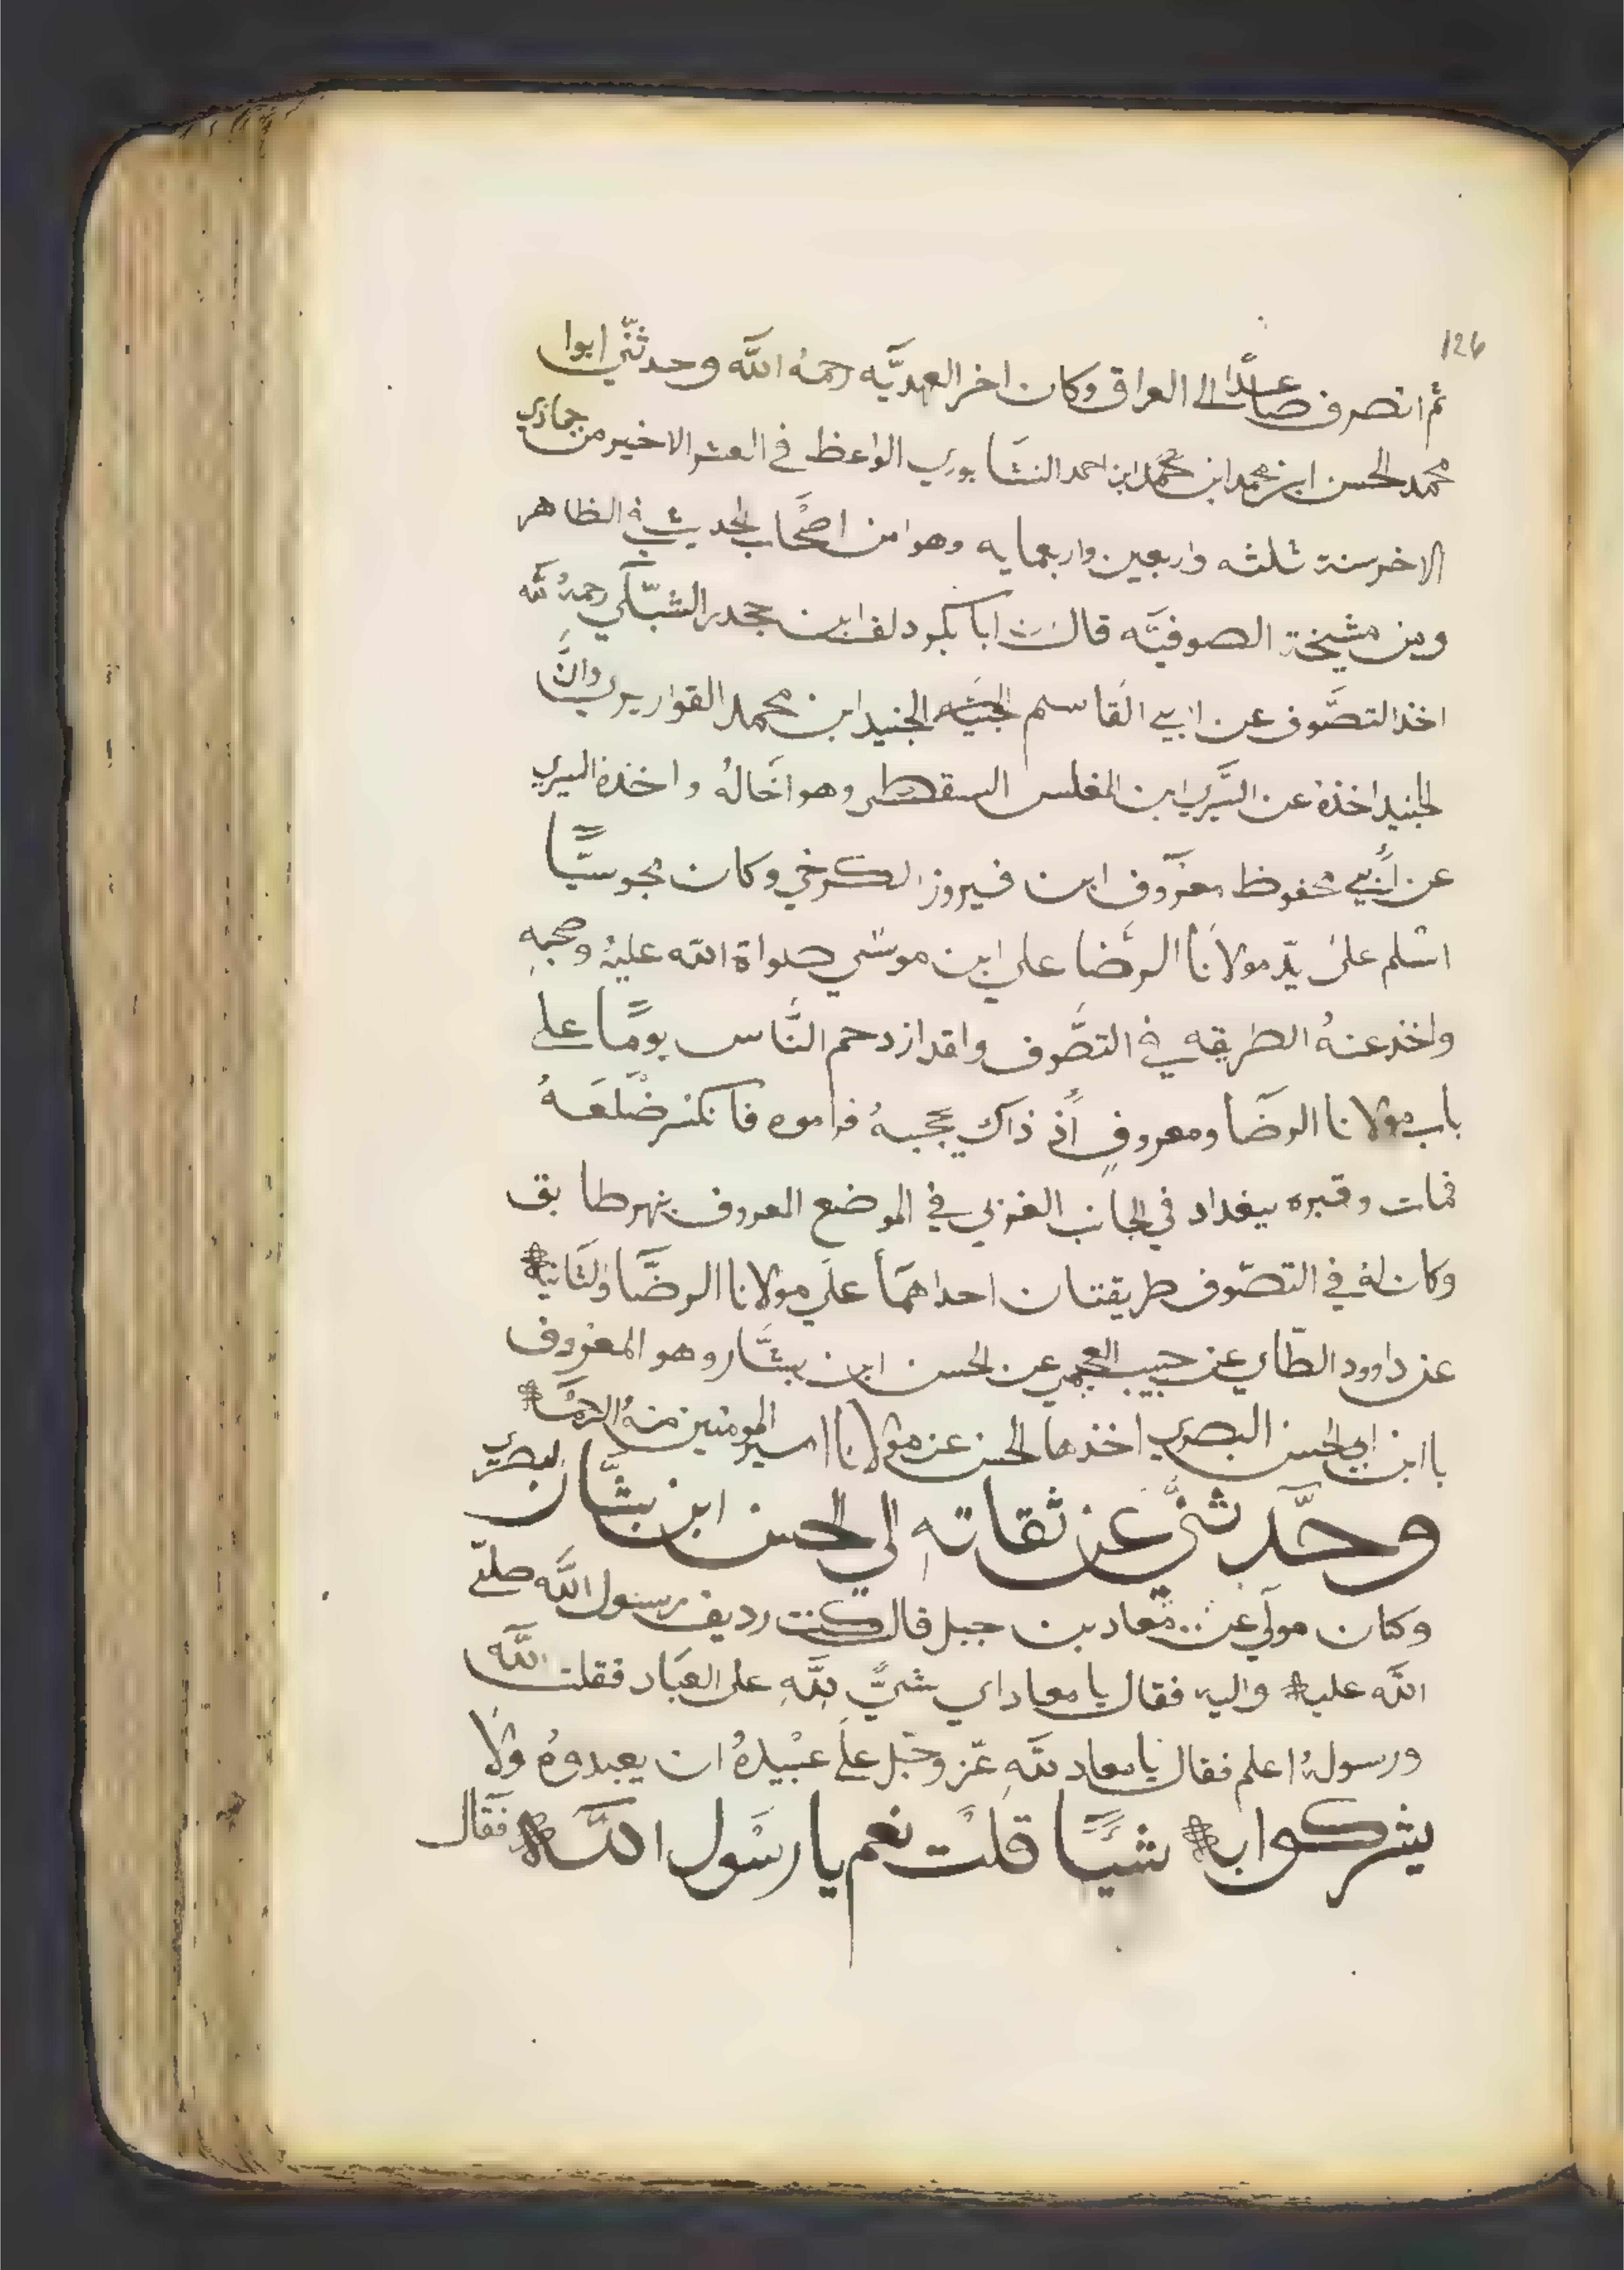 126
ثم انصرف صاعدًا الي العراق وكان اخر العهديَّه رحمهُ اللَّه وحدثنّي ابوا
محمد الحسن ابن محمد ابن محمد ابن احمد النشابوري الواعظ في العشر الاخير من جمادي
الاخر سنة ثلثه واربعين واربعمايه وهوا من اصْحاب الحديث في الظاهر
ومن مشيخة الصوفيَّه قال ابا بكر دلف ابن جحدر الشبلّي رحمهُ اللَّه
اخذ التصَّوف عن ابي القاسم الجنيد ابن محمد القواريري وانَّ
الجنيد اخذهُ عن السَّري ابن المغلس السقطي وهوا خَالهُ واخذهُ السري
عن أبي محفوظ معرَوف ابن فيروز الكرخي وكان مجوسيًّا
اسلم على يدّ مولانا الرضَا علي ابن موسَي صلواة اللَّه عليهُ وصحبهِ
واخذ عنهُ الطريقه في التصَّوف واقد ازدحم النَّاس يومًا علي
باب مولانا الرضَا ومعروف أذ ذاك يحجبهُ فراموه فانكسر ضْلَعَهُ
فمات وقبره ببغداد في الجانب الغربي في الموضع المعروف بنهر طابق
وكان لهُ في التصّوف طريقتان احداهمَا علَي مولانا الرضَّا والثانيه
عن داوود الطّاي عن حبيب العجمي عن الحسن ابن بشَّار وهو المعرَوف
باابن ابي الحسن البصري اخذها الحسن عن مولانا امير المومنين منهُ الرحمَه
وحدَّثنيُّ عن ثقاتهِ الي الحسن ابن بشَّار البصري
وكان مولَي عن معاد بن جبل قال كنت رديف رسول اللَّه صلّي
اللَّه عليه واليه فقال يا معاد اي شيٌّ للَّهِ على العبَاد فقلت اللَّه
ورسولهُ اعلم فقال يَا معاد للَّهِ عّز وجَل علَي عبْيدهُ ان يعبدوهُ ولَا
يشركوا به شيًا قلْت نعم يا رسَول اللَّه فقَال